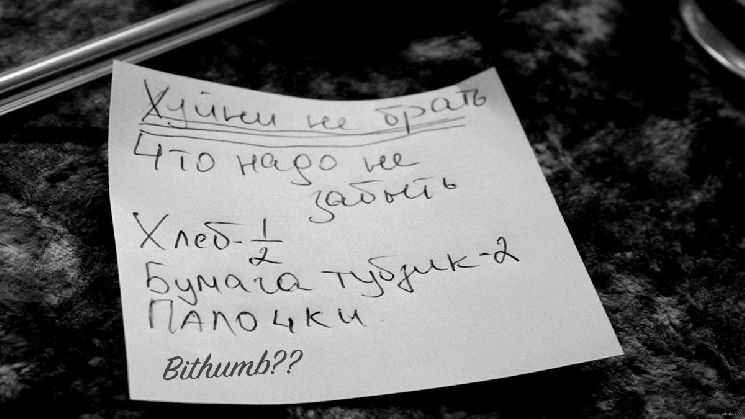 Хуйни не брать
Что надо не
забыть
Хлеб-1/2
Бумага тубзик-2
Палочки
Bithumb??